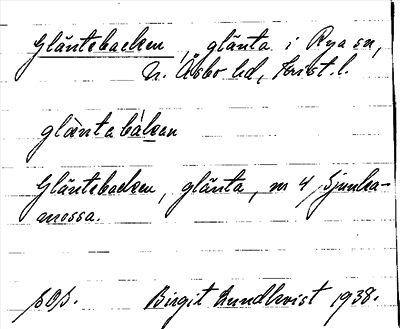 Gläntebacken, glänta i Rya sn,
N. Åsbo hd, Krist. l.
glæ̀ntabákan
Gläntebacken, glänta, m 4 Sjunka-
mossa.
sOs. Birgit Lundkvist 1938.